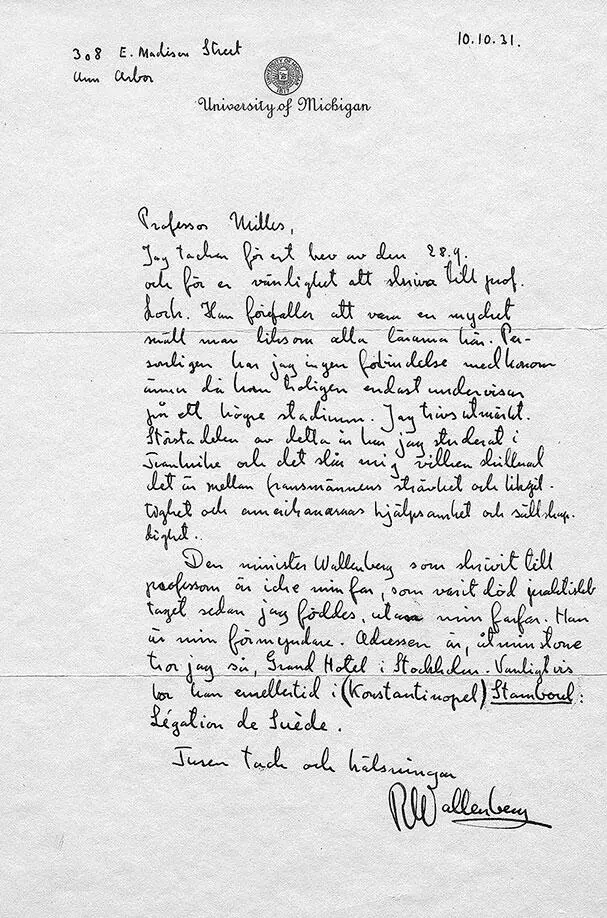 10.10.31.
308 E. Madison Street
Ann Arbor
University of Michigan
Professor Milles,
Jag tackar för ert brev av den 28.9.
och för er vänlighet att skriva till prof.
Lorch. Han förefaller att vara en mycket
snäll man liksom alla lärarna här. Per-
sonligen har jag ingen förbindelse med honom
ännu då han tydligen endast undervisar
på ett högre stadium. Jag trivs utmärkt.
Största delen av detta år har jag studerat i
Frankrike och det slår mig vilken skillnad
det är mellan fransmännens strävhet och likgil-
tighet och amerikanarnas hjälpsamhet och sällskap-
lighet.
Den minister Wallenberg som skrivit till
professorn är icke min far, som varit död praktiskt
taget sedan jag föddes, utan min farfar. Han
är min förmyndare. Adressen är, åtminstone
tror jag så, Grand Hotel i Stockholm. Vanligtvis
bor han emellertid i (Konstantinopel) Stamboul:
Légation de Suède.
tack och hälsningar
R Wallenberg